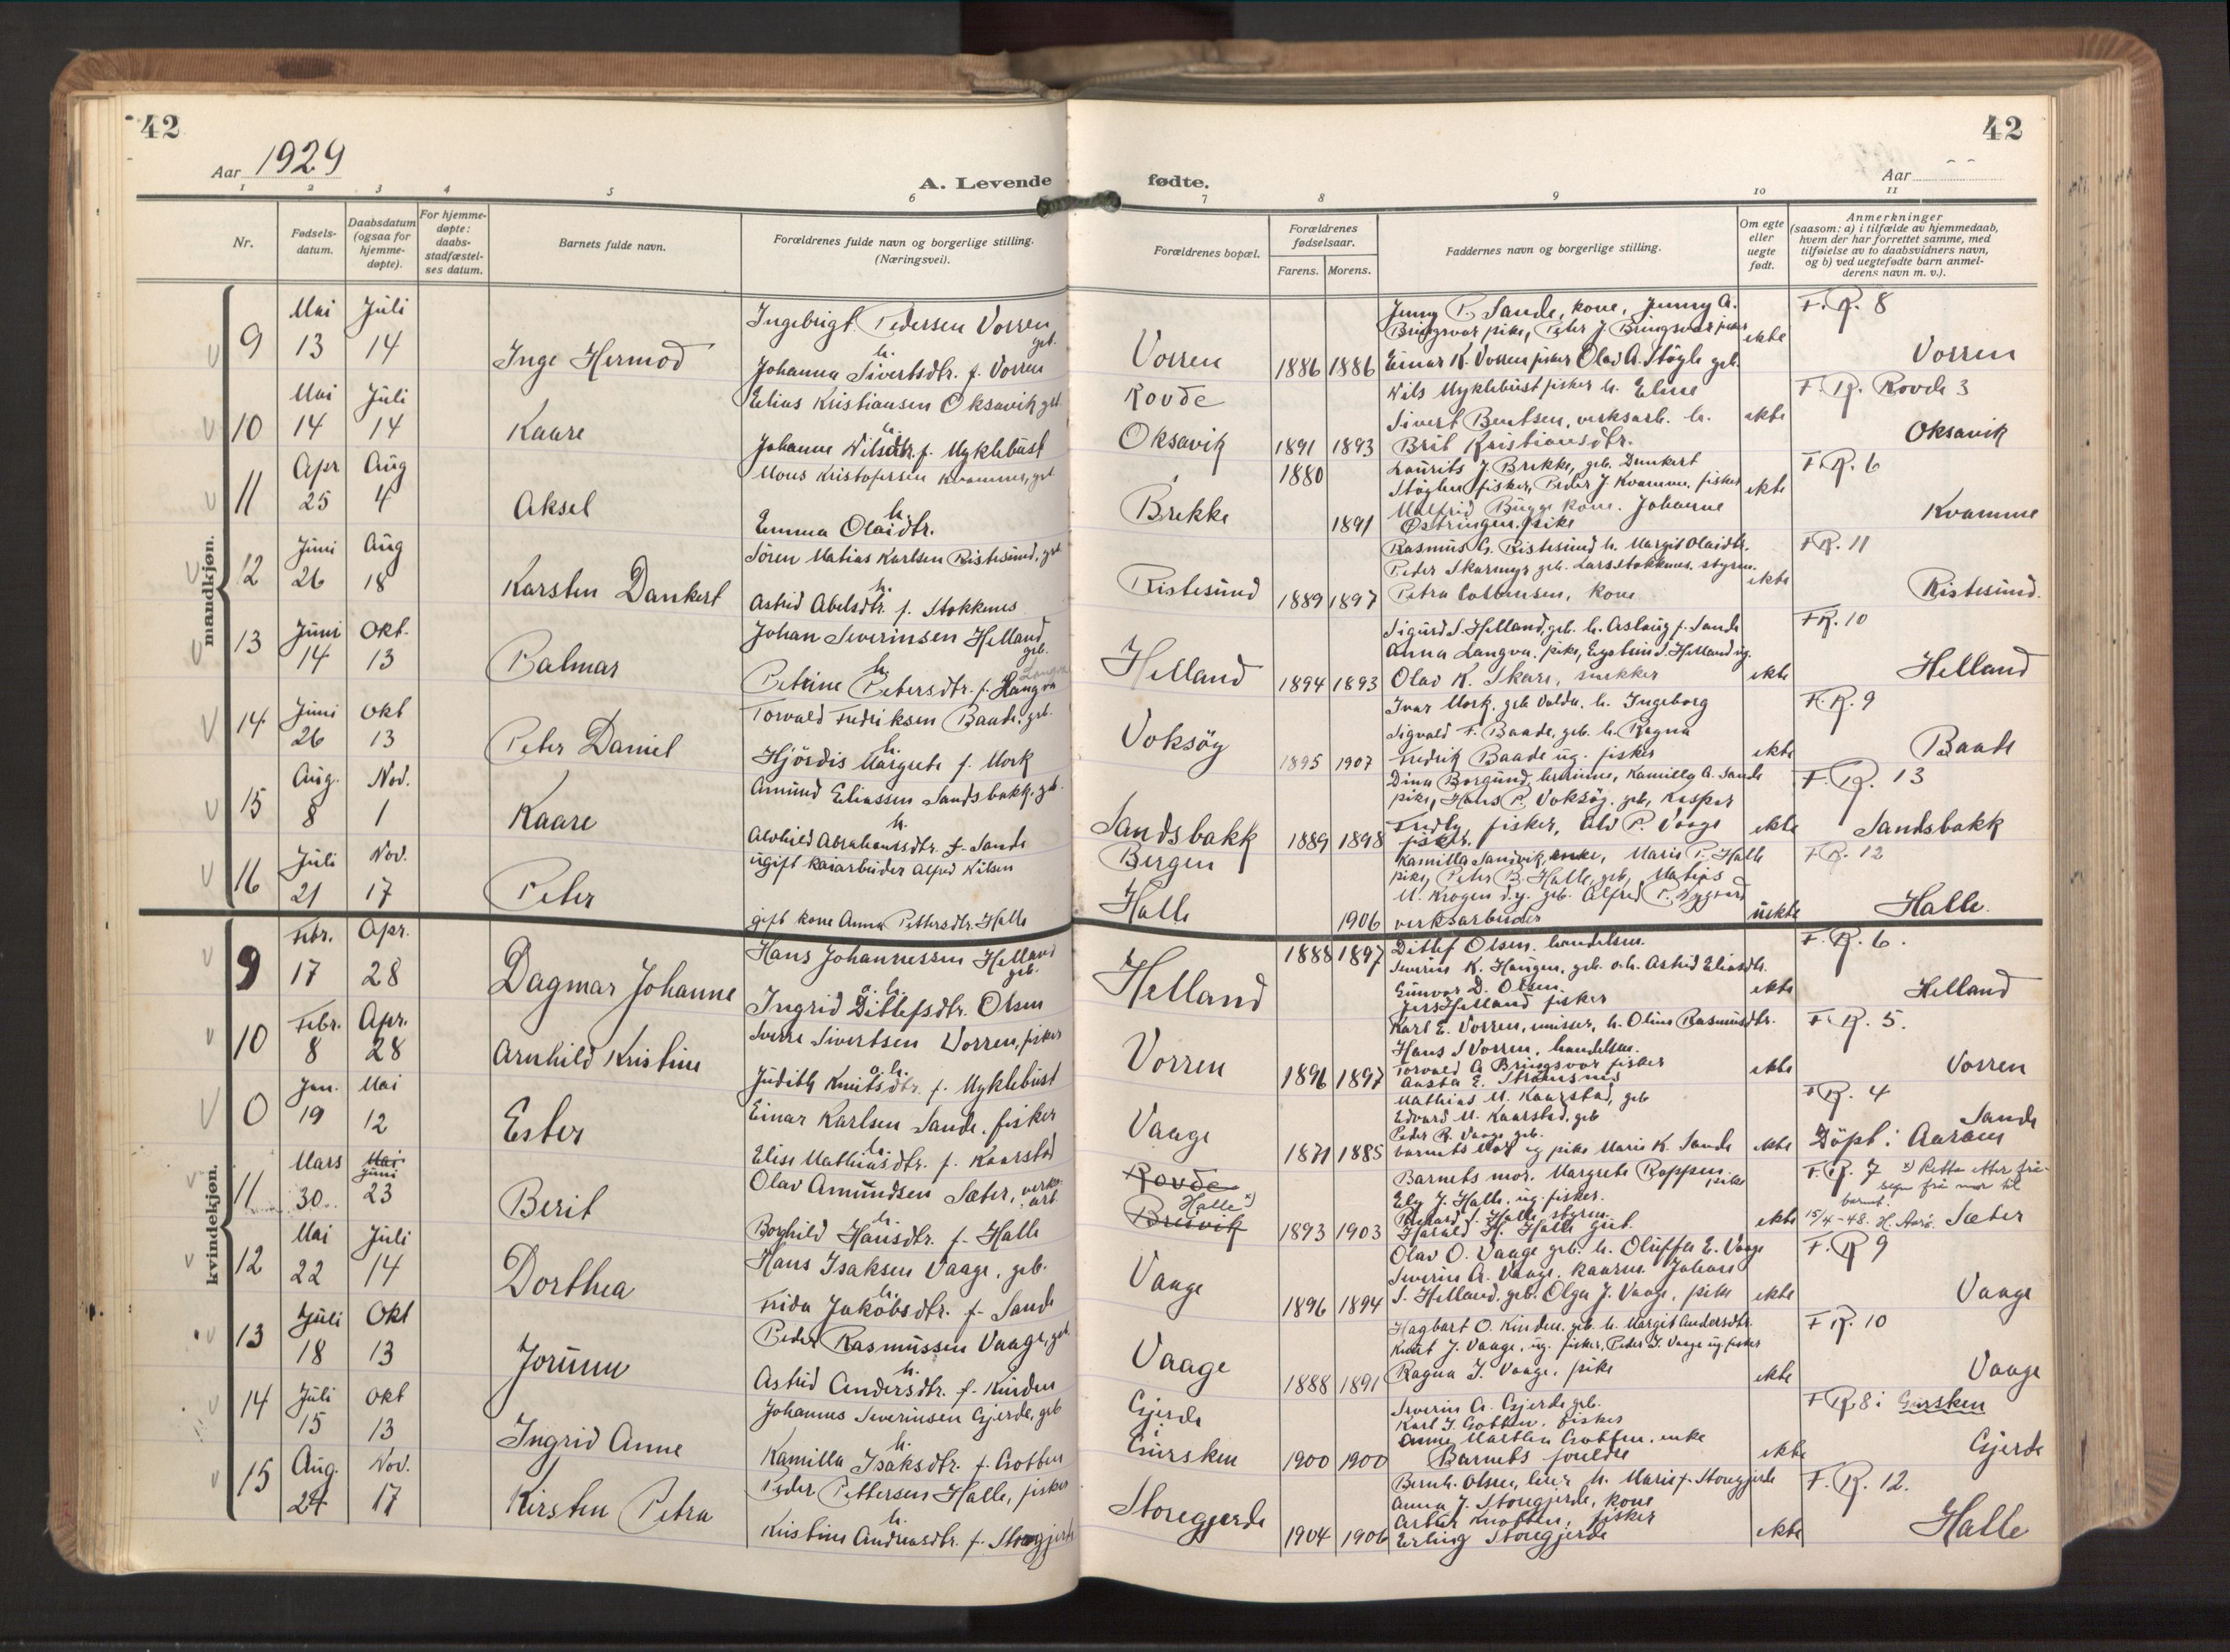 42
Aar 1929
A. Levende
1 2 3 4 5 6
Nr.
Fødsels-
datum.
Daabsdatum
(ogsaa for
hjemme-
døpte).
For hjemme-
døpte:
daabs-
stadfæstel-
ses datum.
Barnets fulde navn.
Forældrenes fulde navn og borgerlige stilling.
(Næringsvei).
mandkjøn.
9 Mai 13 Juli 14 Inge Hermod
Ingebrigt Pedersen Vorren
geb.
h.
Johanna Sivertsdtr. f. Vorren
10 Mai 14 Juli 14 Kaare
Elias Kristiansen Oksavik gbr
h.
Johanne Nilsdtr. f. Myklebust
11 Apr 25 Aug 4 Aksel
Mons Kristofersen Kvamme, geb
h.
Emma Olaidtr.
12 Juni 26 Aug 18 Karsten Dankert
Søren Matias Karlsen Ristesund, geb
h.
Astrid Abelsdtr. f. Stokknes
13 Juni 14 Okt. 13 Palmar
Johan Severinsen Helland,
geb.
h.
Petrine Petersdtr. f. Langva
14 Juni 26 Okt 13 Peter Daniel
Torvald Fredriksen Baade, geb.
h.
Hjördis Margrete f. Mork
15 Aug. 8 Nov. 1 Kaare
Amund Eliassen Sandsbakk, geb.
h.
Alvhild Abrahamsdtr. f. Sande
16 Juli 21 Nov. 17 Peter
ugift kaiarbeider Alfred Nilsen
gift kone Anna Pettersdtr. Halle
kvindekjøn.
9 Febr. 17 Apr. 28 Dagmar Johanne
Hans Johannessen Helland
geb.
o. h.
Ingrid Ditlefsdtr. Olsen
10 Febr. 8 Apr. 28 Arnhild Kristine
Sverre Sivertsen Vorren, fisker
o. h.
Judith Knutsdtr. f. Myklebust
0 Jan. 19 Mai 12 Ester
Einar Karlsen Sande, fisker
h.
Elise Mathiasdtr. f. Kaarstad
11 Mars 30 Mai Juni 23 Berit
Olav Amundsen Sæter, verks.
arb.
h.
Borghild Hansdtr. f. Halle
12 Mai 22 Juli 14 Dorthea
Hans Isaksen Vaage, geb.
h.
Frida Jakobsdtr. f. Sande
13 Juli 18 Okt 13 Jorunn
Peder Rasmussen Vaage, geb.
h.
Astrid Andersdtr. f. Kinden
14 Juli 15 Okt 13 Ingrid Anne
Johannes Severinsen Gjerde, geb
h.
Kamilla Isaksdtr. f. Gotten
15 Aug. 24 Nov. 17 Kirsten Petra
Peder Pettersen Halle, fisker
h.
Kristine Andreasdtr. f. Storegjerde
42
fødte.
Aar
7 8 9 10 11
Forældrenes bopæl.
Forældrenes
fødselsaar.
Farens. Morens.
Faddernes navn og borgerlige stilling.
Om egte
eller
uegte
født.
Anmerkninger
(saasom: a) i tilfælde av hjemmedaab,
hvem der har forrettet samme, med
tilføielse av to daabsvidners navn,
og b) ved uegtefødte barn anmel-
derens navn m. v.).
Vorren 1886 1886
Jenny P. Sande, kone, Jenny A.
Bringsvor pike, Peter J. Bringsvor fisker
Einar K. Vorren fisker Olav A. Støyle geb.
ekte F. R. 8 Vorren
Rovde
Oksavik 1891 1893
Nils Myklebust fisker h. Eline
Sivert Bentsen, verksarb. h.
Brit Kristiansdtr.
ekte F. R. Rovde 3 Oksavik
Brekke 1880 1891
Laurits J. Brekke, geb. Dankert
Støylen fisker, Peder J. Kvamme, fisker
Malfrid Bugge kone. Johanne
Østringen, pike
ekte F. R. 6 Kvamme
Ristesund 1889 1897
Rasmus G. Ristesund h. Margit Olaidtr.
Peder Skarmyr geb. Lars Stokknes, styrm.
Petra Colbensen, kone
ekte F R. 11 Ristesund.
Helland 1894 1893
Sigurd S. Helland, geb. h. Aslaug f. Sande
Anna Langva, pike, Eystein S. Helland ug.
Olav K. Skare, snekker
ekte F R. 10 Helland
Voksøy 1895 1907
Ivar Mork, geb Volda, h. Ingeborg
Sigvald F. Baade, geb. h. Ragna
Fredrik Baade ug. fisker
ekte F. R. 9 Baade
Sandsbakk 1889 1898
Dina Borgund, lærerinne, Kamilla A. Sande
pike, Hans P. Voksøy, geb, Kasper
fisker, Alv P. Vaage
fisker.
ekte F. R. 13 Sandsbakk
Bergen
Halle 1906
Kamilla Sandvik, enke, Marie P. Halle
pike, Peter B. Halle, geb, Matias
M. Krogen d.y. geb. Alfred P. Nygard
verksarbeider
uekte F R. 12 Halle.
Helland 1888 1897
Ditlef Olsen, handelsm.
Severin K. Haugen, geb. o.h. Astrid Eliasdtr.
Gunvor D. Olsen
Jens Helland fisker
ekte F. R. 6. Helland
Vorren 1896 1897
Karl E. Vorren, misser, h. Oline Rasmusdtr.
Hans S Vorren, handelsm.
Torvald A Bringsvor fisker
Aasta E. Strömsnes
ekte F. R. 5. Vorren
Vaage 1871 1885
Mathias M. Kaarstad, geb
Edvard M. Kaarstad, geb
Peder R. Vaage geb.
barnets mor og pike Marie K. Sande
ekte F R. 4 Sande
Döpt i Aaram
Rovde
Halle x)
Breivik 1893 1903
Barnets mor, Margrete Roppen
pike
Ely J. Halle, ug. fisker.
Rikard J. Halle styrm.
Harald H. Halle gut.
ekte F. R. 7 x) Retta etter frå-
segn frå mor til
barnet.
15/4-48. H. Aarö. Sæter
Vaage 1896 1894
Olav O. Vaage geb. h. Oluffa E. Vaage
Severin A. Vaage, Kaarne Johans
S. Helland, geb. Olga J. Vaage, pike
ekte F. R 9 Vaage
Vaage 1888 1891
Hagbart O. Kinden, geb. h. Margit Andersdtr.
Knut J. Vaage, ug. fisker, Peder I. Vaage ug fisker
Ragna I. Vaage, pike
ekte F R. 10 Vaage
Gjerde
i
Gursken 1900 1900
Severin A. Gjerde geb.
Karl I. Gotten, fisker
Anne Marthea Gotten, enke
Barnets foreldre
ekte F R 8 i Gursken Gjerde
Storegjerde 1904 1906
Bernh. Olsen, h. Marie f. Storegjerde
Anna J. Storegjerde, kone
Artur Knotten, fisker
Erling Storegjerde
ekte F. R. 12. Halle